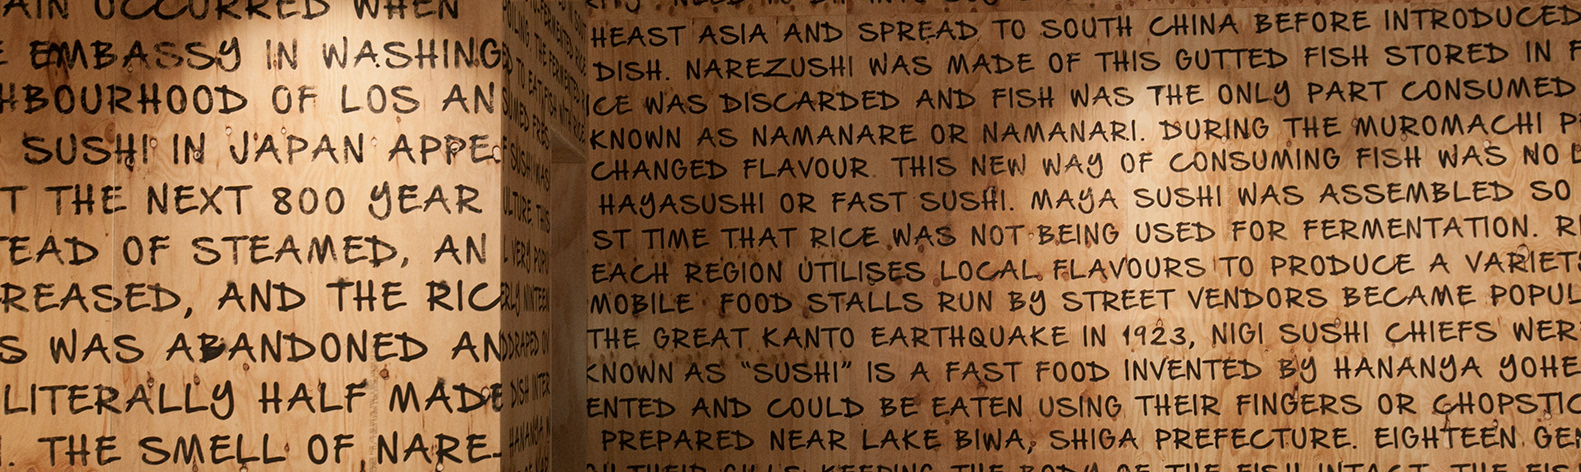 OCCURRED WHEN
EMBASSY IN WASHING
HBOURHOOD OF LOS AN
SUSHI IN JAPAN APPE
T THE NEXT 800 YEAR
TEAD OF STEAMED, AN
REASED, AND THE RIC
S WAS ABANDONED AN
LITERALLY HALF MADE
. THE SMELL OF NARE-
HEAST ASIA AND SPREAD TO SOUTH CHINA BEFORE INTRODUCED
DISH. NAREZUSHI WAS MADE OF THIS GUTTED FISH STORED IN F
CE WAS DISCARDED AND FISH WAS THE ONLY PART CONSUMED
KNOWN AS NAMANARE OR NAMANARI. DURING THE MUROMACHI P
CHANGED FLAVOUR. THIS NEW WAY OF CONSUMING FISH WAS NO L
HAYASUSHI OR FAST SUSHI. MAYA SUSHI WAS ASSEMBLED SO
ST TIME THAT RICE WAS NOT BEING USED FOR FERMENTATION. RI
EACH REGION UTILISES LOCAL FLAVOURS TO PRODUCE A VARIETY
MOBILE FOOD STALLS RUN BY STREET VENDORS BECAME POPUL
THE GREAT KANTO EARTHQUAKE IN 1923, NIGI SUSHI CHIEFS WER
KNOWN AS "SUSHI" IS A FAST FOOD INVENTED BY HANANYA YOHE
ENTED AND COULD BE EATEN USING THEIR FINGERS OR CHOPSTIC
PREPARED NEAR LAKE BIWA, SHIGA PREFECTURE. EIGHTEEN GEN
THEIR GILLS KEEPING THE BODY OF THE FISH INTACT. THE FIS